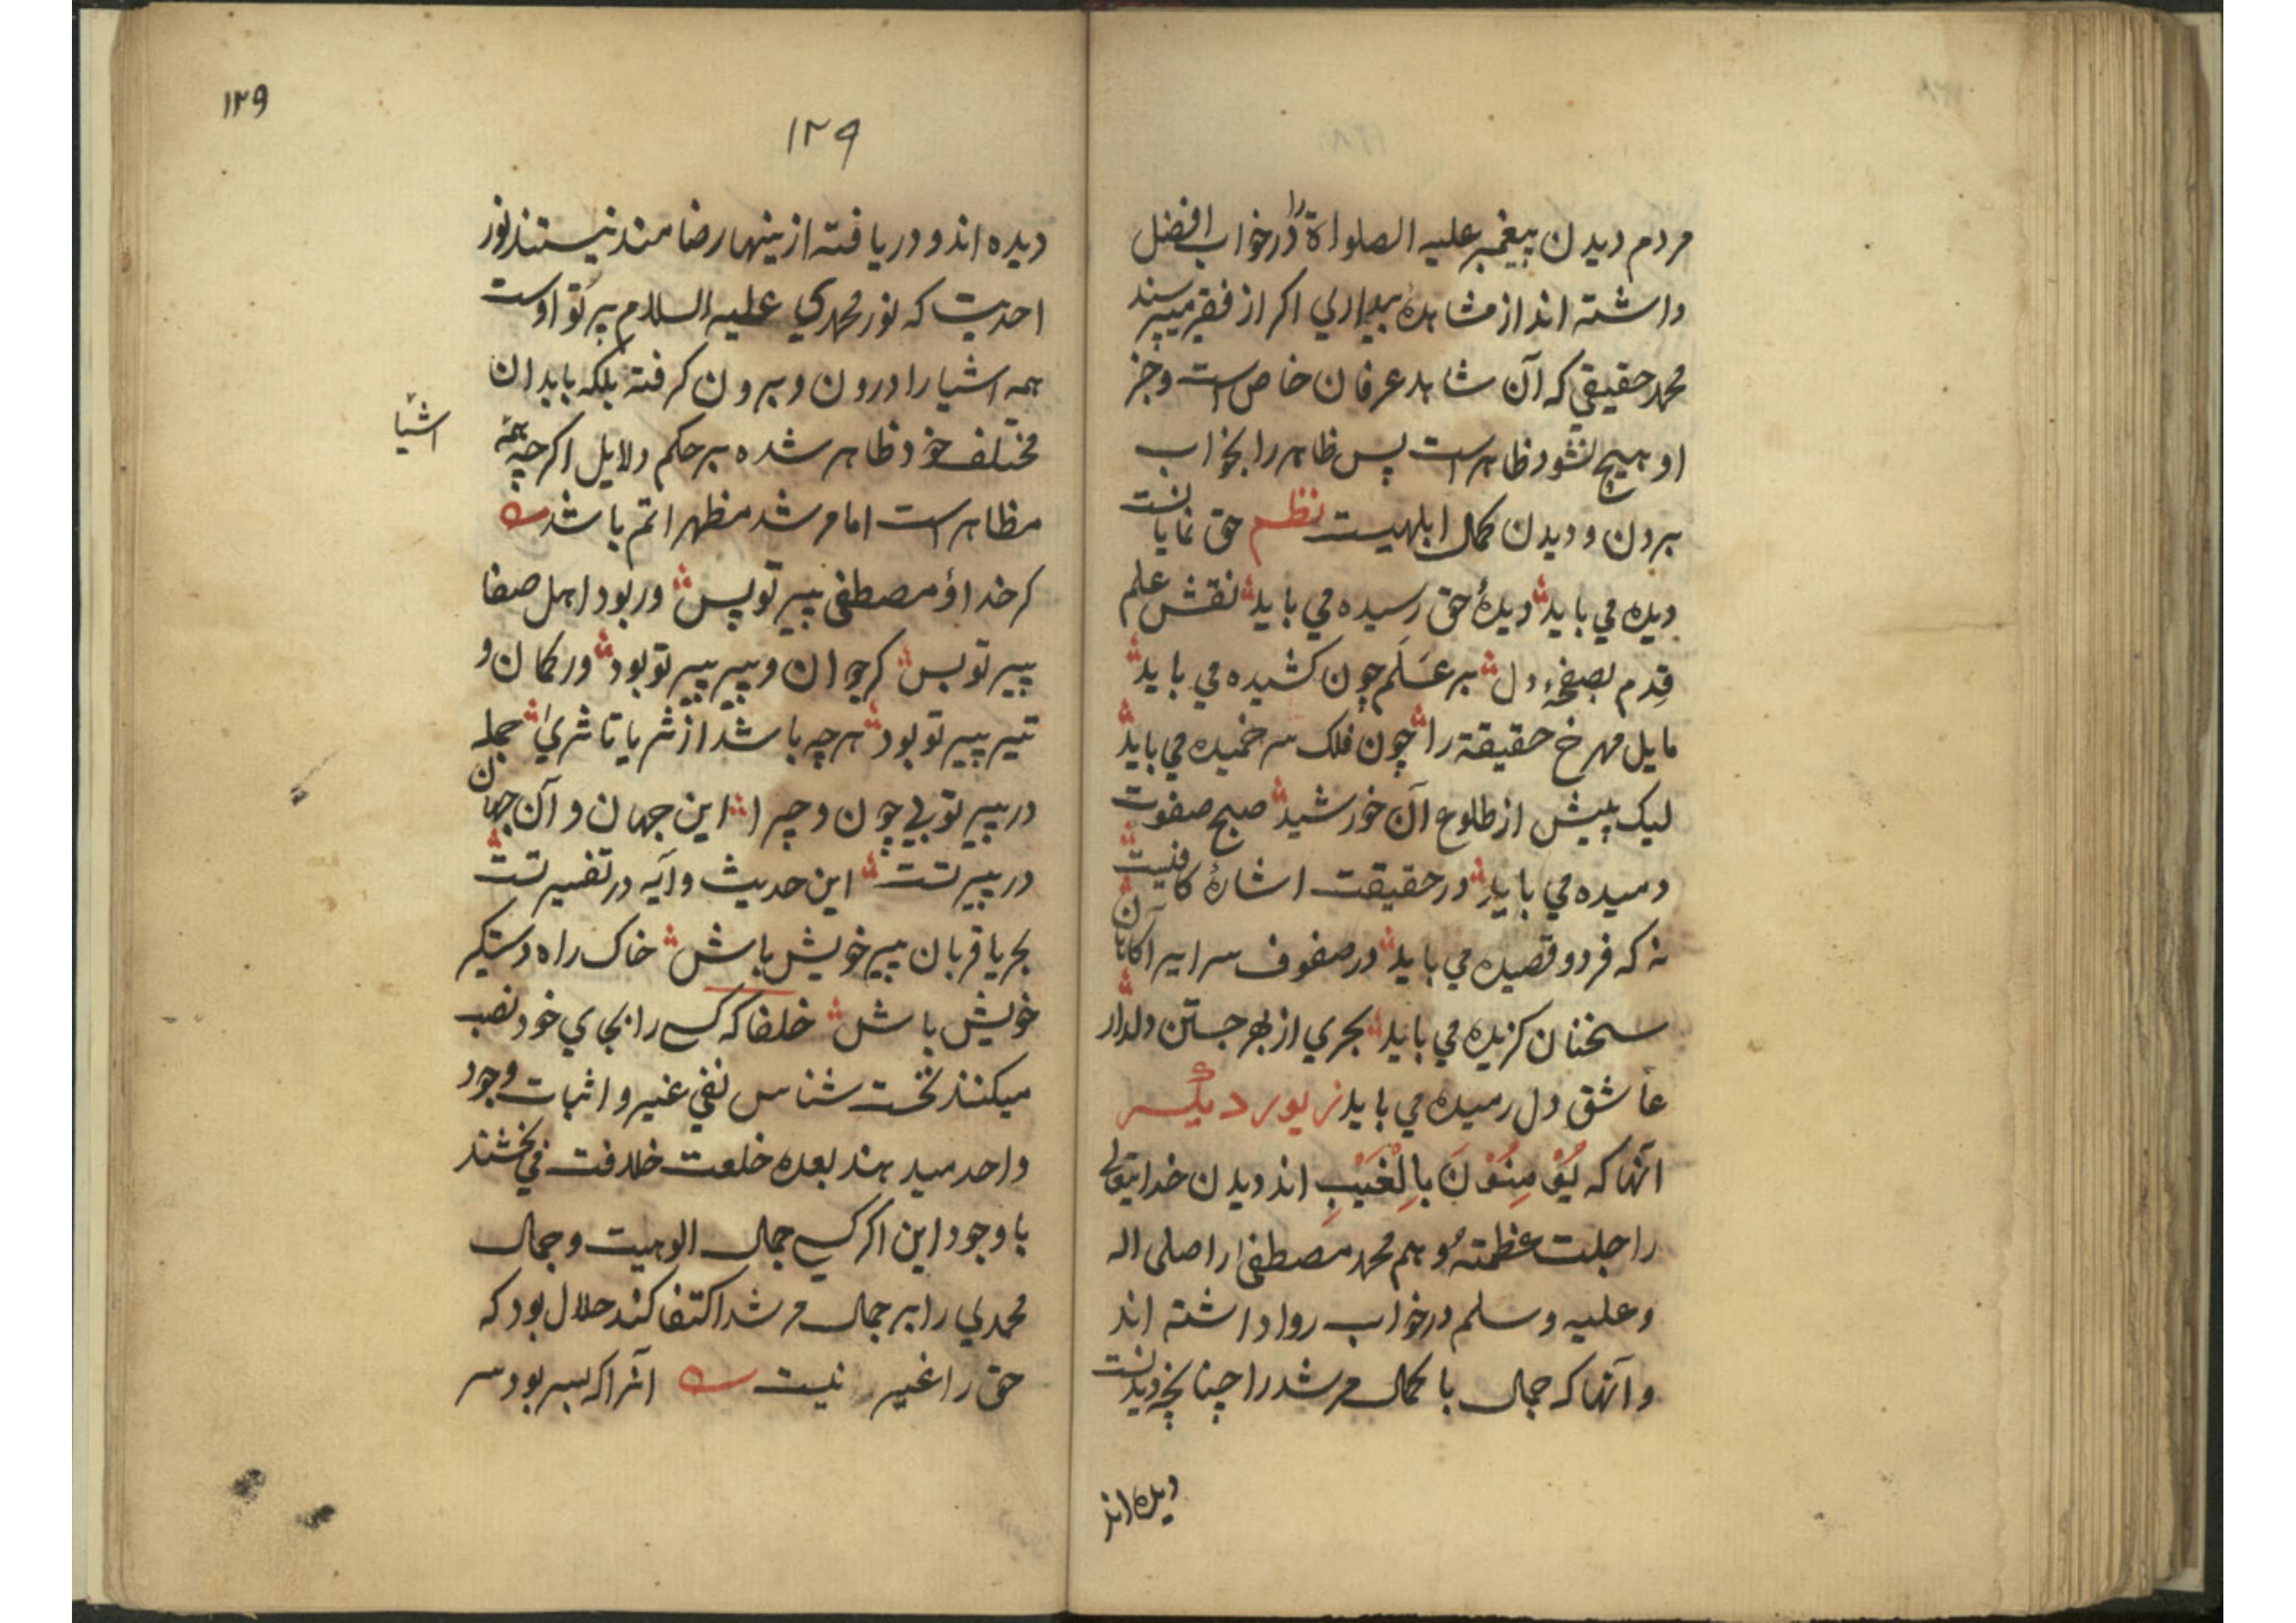 مردم دیدن پیغمبر علیه الصلواة را در خواب افضل
داشته اند از مشاهدهٔ بیداری اکر از فقیر میپرسند
محمد حقیقی که آن شاهد عرفان خاص است و جز
او هیچ نشود ظاهر است پس ظاهر را بخواب
بردن و دیدن کمال ابلهیست نظم حق نمایانست
دیده می باید دیدهٔ حق رسیده می باید نقش علم
قِدم بصفحهٔ دل بر عَلَم چون کشیده می باید
مایل مهر خ حقیقة را چون فلک سر خمیده می باید
لیک پیش از طلوع آن خورشید صبح صفوت
دمیده می باید در حقیقت اشارهٔ کافیست
نه که فرد و قصیده می باید در صفوف سرایر آکاهان
سخنان کزیده می باید بحری از بهر جستن دلدار
عاشق دل رمیده می باید زیور دیگر
آنها که یُؤمِنُوْنَ بِالْغَیْبِ اند دیدن خدایتعالی
را جلت عظمتهٔ و هم محمد مصطفی را صلی اله
و علیه و سلم در خواب روا داشته اند
و آنها که جمال با کمال مرشد را چنانچه دیدنست
دیده اند
۱۲۹
۱۲۹
دیده اند و دریافته از ینها رضامند نیستند نور
احدیت که نور محمدی علیه السلام پرتو اوست
همه اشیا را درون و برون کرفته بلکه بابدان
مختلف خود ظاهر شده بر حکم دلایل اکرچه همه
اشیا
مظاهر است اما مرشد مظهر اتم باشد
کر خدا ؤ مصطفی پیر تو پس ور بود اهل صفا
پیر تو بس کر جوان و پیر پیر تو بود ور کمان و
تیر پیر تو بود هرچه باشد از ثریا تا ثری جمله
در پیر تو بی چون و چرا این جهان و آن جهان
در پیر تست این حدیث و آیه در تفسیر تست
بحریا قربان پیر خویش باش خاک راه دستکیر
خویش باش خلفا که کسی را بجای خود نصب
میکنند نخست شناس نفی غیر و اثبات وجود
واحد میدهند بعده خلعت خلافت می بخشند
با وجود این اکر کسی جمال الوهیت و جمال
محمدی را بر جمال مرشد اکتفا کند حلال بود که
حق را غیر نیست آنرا که بسر بود سر